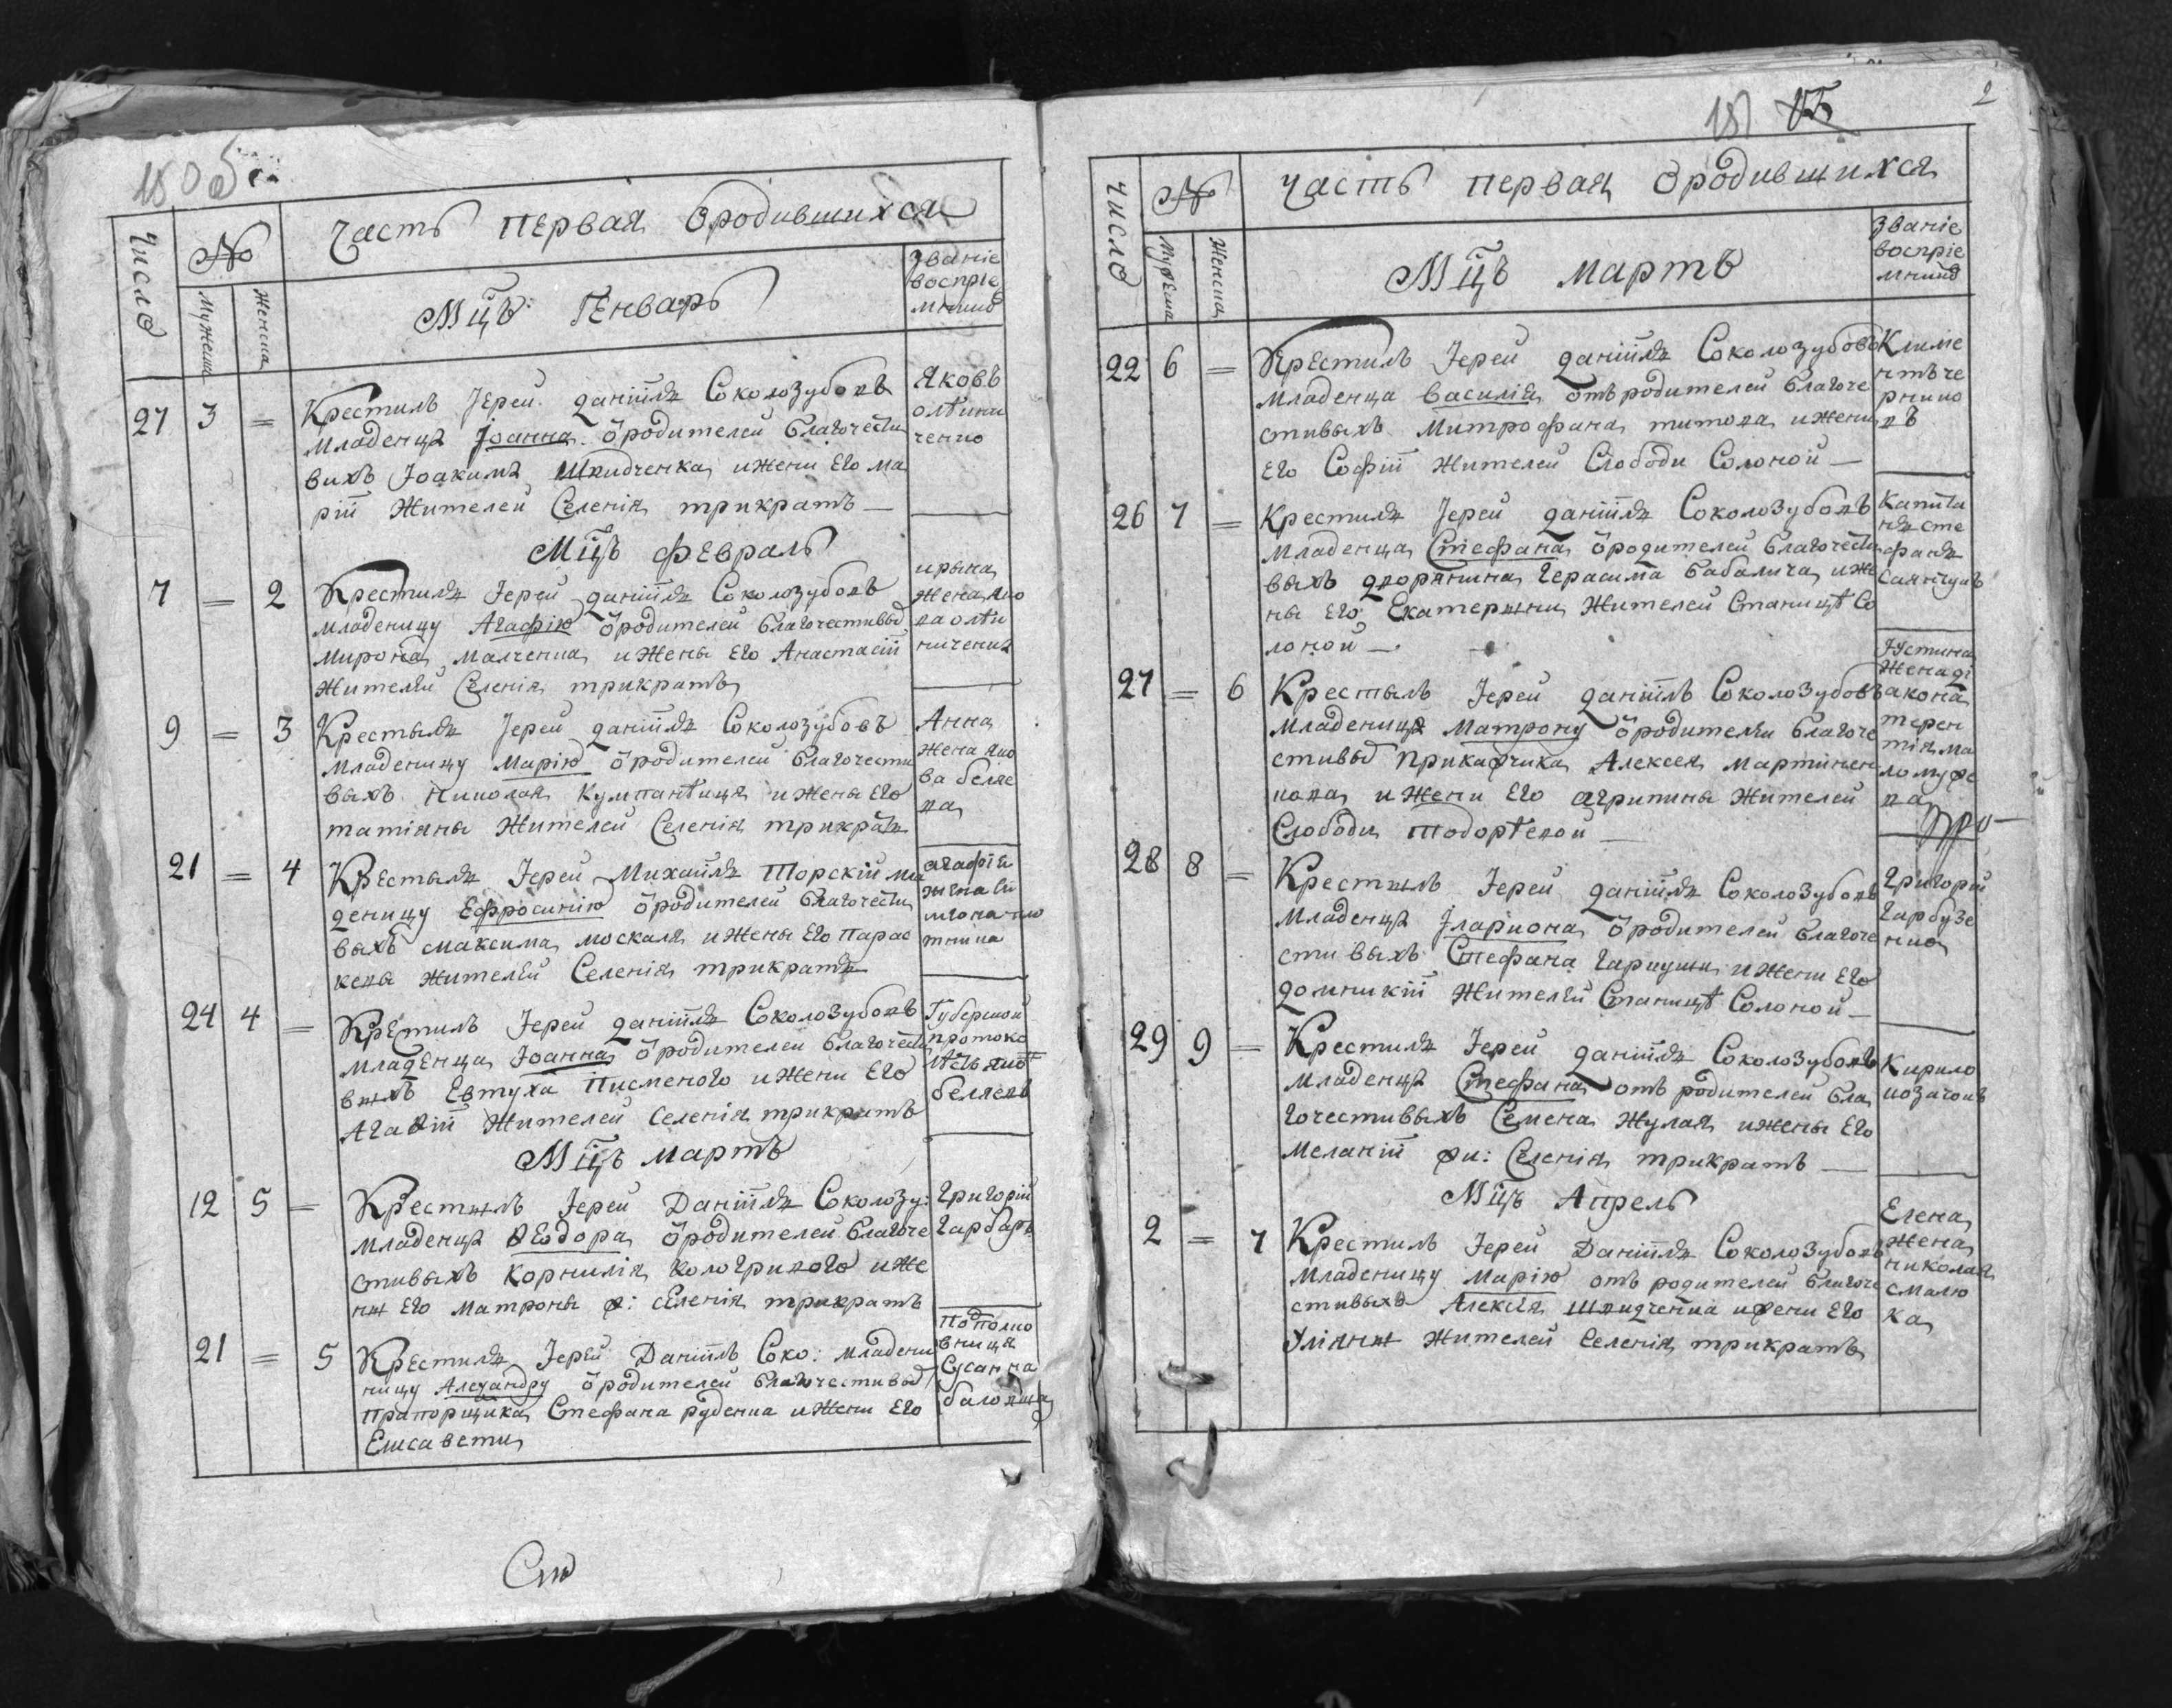 Часть первая о родившихся
Число
№
Мужеска
Женска
Мцъ Генварь
Званіе
воспріе
мников
27 3 = Крестилъ Іерей Даніилъ Соколозубовъ
младенца Іоанна ѿ родителей благочести
вихъ Іоакима Шкидченка и жени Его ма
ріи жителей Селенія трикратъ
Яковъ
Мцъ февраль
7 = 2 Крестилъ Іерей Даніилъ Соколозубовъ
младеницу Агафію ѿ родителей благочестивыѯ
Мирона Малченка и жены Его Анастасіи
жителей Селенія трикратъ
ирына
жена яко
ва олѣи
ниченка
9 = 3 Крестылъ Іерей Даніилъ Соколозубовъ
младеницу Марію ѿ родителей благочести
выхъ Николая и жены Его
татіяны жителей Селенія трикратъ
Анна
жена яко
ва беляе
ва
21 = 4 Крестылъ Іерей Михаилъ Торскій мла
деницу Ефросинію ѿ родителей благочести
выхъ максима москаля и жены Его парас
кевы жителей Селенія трикратъ
агафія
жена
24 4 = Крестилъ Іерей Даніилъ Соколозубовъ
младенца Іоанна ѿ родителей благочести
выхъ Евтуха Писменого и жени Его
Агафіи жителей Селенія трикратъ
Губерской
протоко
беляевъ
Мцъ мартъ
12 5 = Крестылъ Іерей Даніилъ Соколозу:
младенца Ѳеодора ѿ родителей благоче
стивыхъ корнилія кологривого и же
ны Его матроны ж: селенія трикратъ
Григорій
Гарбарь
21 = 5 Крестилъ Іерей Даніилъ Соко: младени
ницу Алеѯандру ѿ родителей благочестивыѯ
прапорщика Стефана руденка и жени Его
Елисавети
подполко
вница
Сусанна
2
Часть первая о родившихся
Число
№
Мужеска
Женска
Мцъ мартъ
Званіе
воспріе
мников
22 6 = Крестилъ Іерей Даніилъ Соколозубовъ
младенца василія отъ родителей благоче
стивыхъ Митрофана титова и жени
его Софіи жителей Слободи Солоной
Климе
нтъ че
рнико
въ
26 7 = Крестилъ Іерей Даніилъ Соколозубовъ
младенца Стефана ѿ родителей благочести
выхъ дворянина Герасима бабалича и же
ны его Екатерины жителей Станицѣ Со
лоной
капита
нъ сте
фанъ
27 = 6 Крестылъ Іерей Даніилъ Соколозубовъ
младеница Матрону ѿ родителей благоче
стивыѯ прикажчика Алексея мартинен
кова и жени Его агрипины жителей
Слободи
Іустина
жена ді
акона
терен
тія ма
28 8 = Крестылъ Іерей Даніилъ Соколозубовъ
младенца Іларіона ѿ родителей благоче
стивыхъ Стефана и жени Его
домникіи жителей Станицѣ Солоной
Григорій
Гарбузе
нко
29 9 = Крестилъ Іерей Даніилъ Соколозубовъ
младенца Стефана отъ родителей бла
гочестивыхъ Семена Жулая и жены Его
меланіи жи: Селенія трикратъ
Кирило
козачокъ
Мцъ Апрель
2 = 7 Крестилъ Іерей Даніилъ Соколозубовъ
младеницу Марію отъ родителей благоче
стивыхъ Алексѣя Шкидченка и жени Его
Уліяны жителей Селенія трикратъ
Елена
жена
николая
смалю
ка